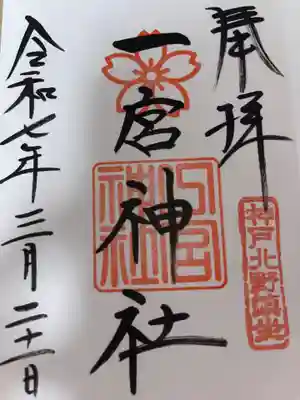 奉拝
神戸北野鎮座
一宮神社
一宮神社
令和七年三月二十一日